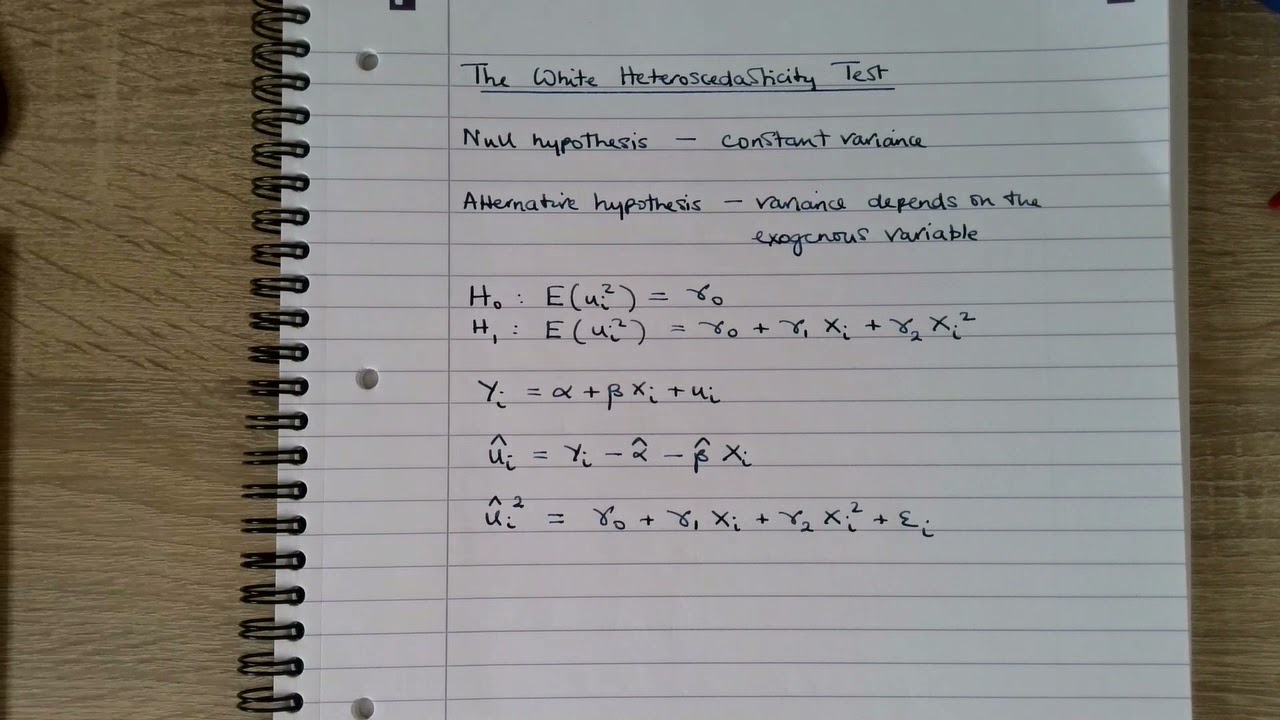 The White Heteroscedasticity Test
Null hypothesis – constant variance
Alternative hypothesis – variance depends on the
exogenous variable
H₀ : E(uᵢ²) = γ₀
H₁ : E(uᵢ²) = γ₀ + γ₁ Xᵢ + γ₂ Xᵢ²
Yᵢ = α + β Xᵢ + uᵢ
ûᵢ = Yᵢ – α̂ – β̂ Xᵢ
ûᵢ² = γ₀ + γ₁ Xᵢ + γ₂ Xᵢ² + εᵢ